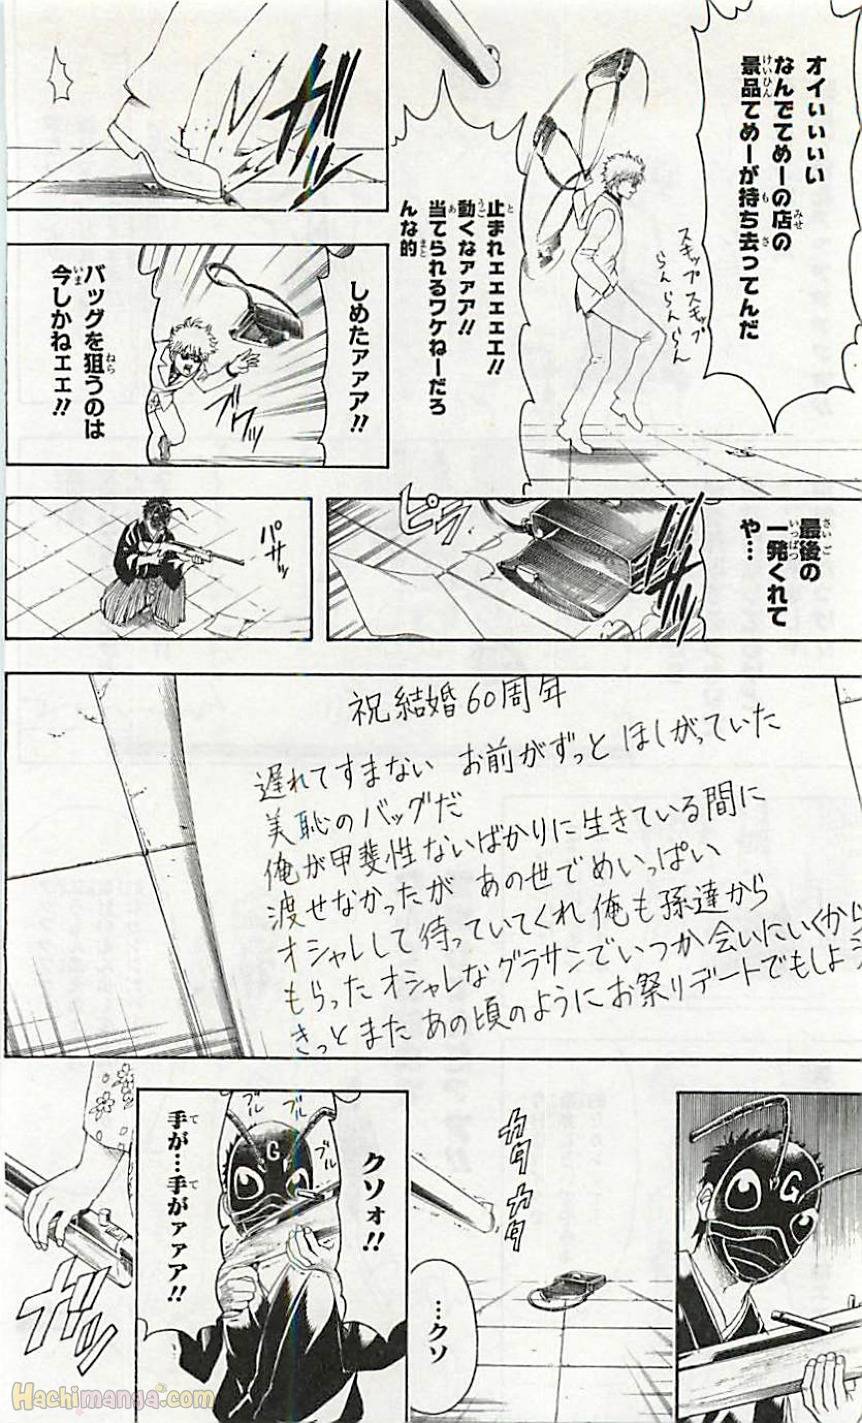 オイぃぃぃい
なんでてめーの店の
景品てめーが持ち去ってんだ
スキップ スキップ
らん らんらん
止まれェェェェェ!!
動くなァァア!!
当てられるワケねーだろ
んな的
しめたァァァ!!
バッグを狙うのは
今しかねェェ!!
最後の
一発くれて
や…
ピラ
パサッ
祝結婚60周年
遅れてすまない お前がずっと ほしがっていた
美恥のバッグだ
俺が甲斐性ないばかりに生きている間に
渡せなかったが あの世でめいっぱい
オシャレして待っていてくれ 俺も孫達から
もらった オシャレなグラサンでいつか会いにいくから
きっとまた あの頃のようにお祭りデートでもしよう
G
カタカタ
…クソ
クソォ!!
ブル
ブル
ブル
G
手が…手がァァア!!
ガッ
Hachimanga.com